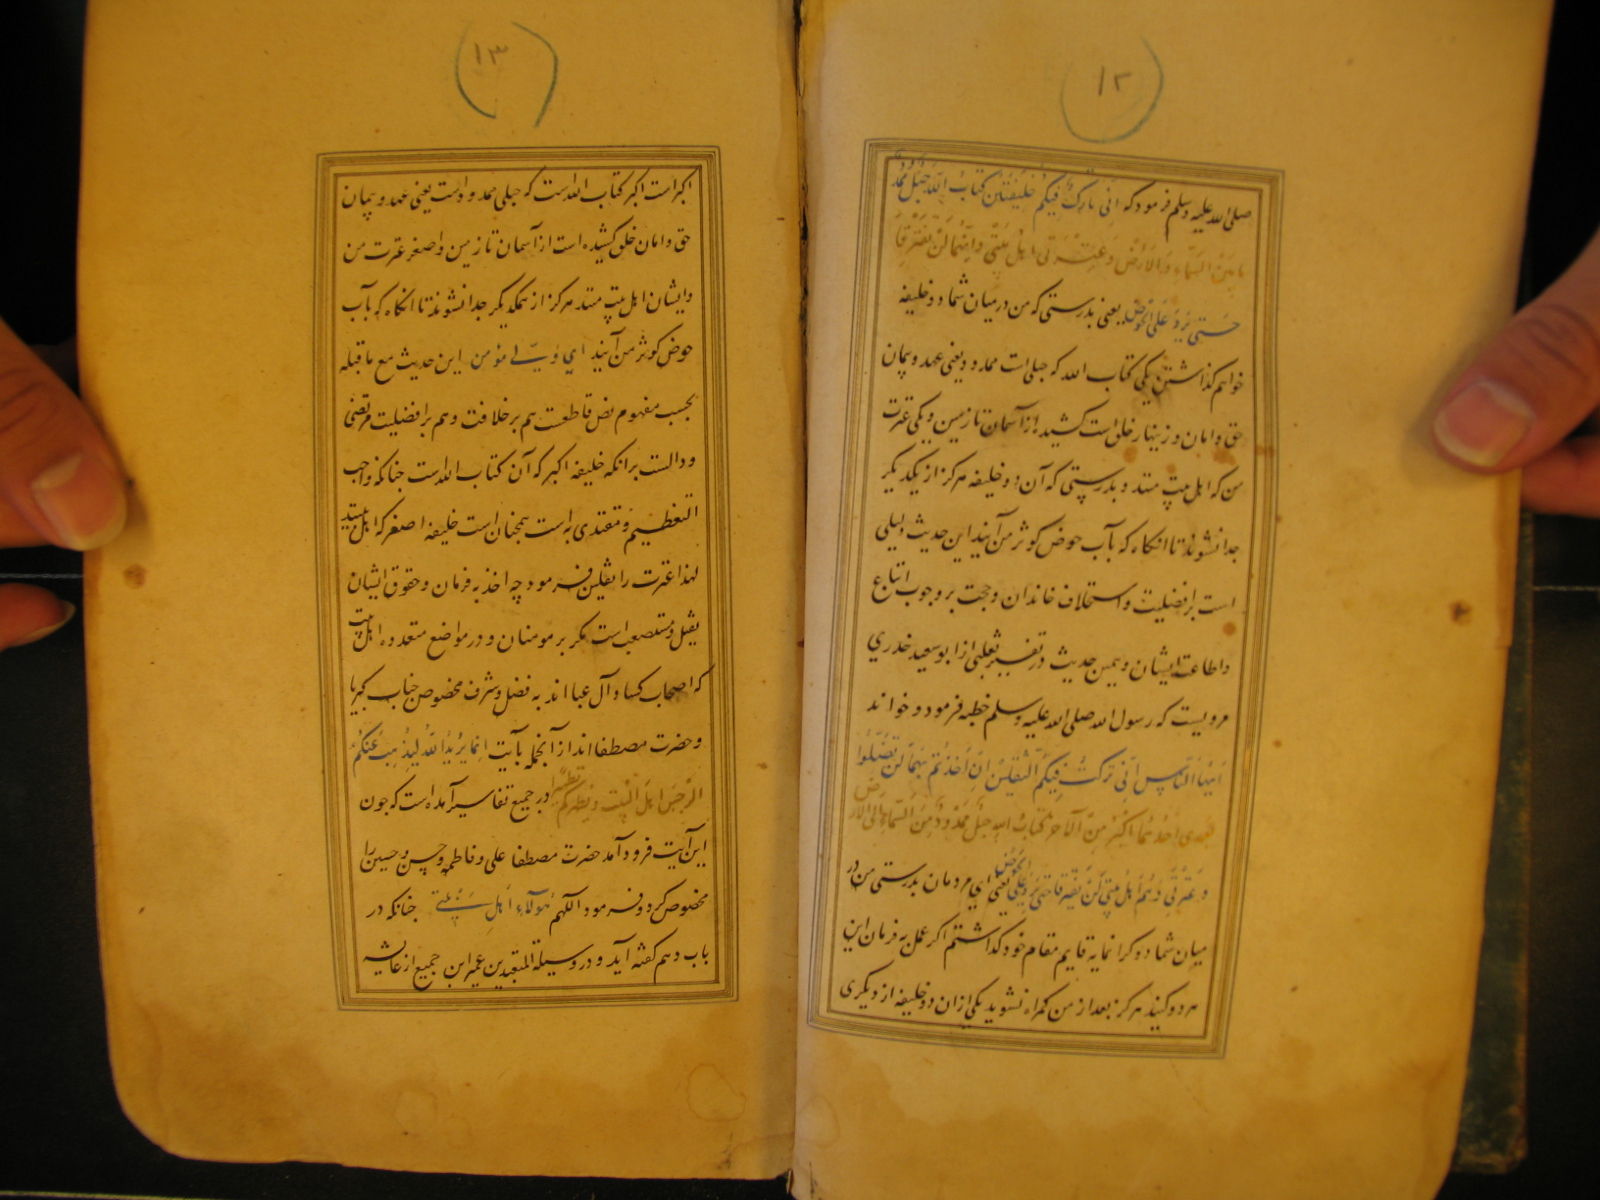 ١٢
صلی الله علیه وسلم فرمود که انی تارک فیکم خلیفتین کتاب الله حبل ممدود
ما بین السماء والارض وعترتی اهل بیتی وانهما لن یفترقا
حتی یردا علی الحوض یعنی بدرستی که من در میان شما دو خلیفه
خواهم گذاشتن یکی کتاب الله که حبلی است ممدود یعنی عهد و پیمان
حق و امان و زینهار خلق است کشیده از آسمان تا زمین و یکی عترت
من که اهل بیت منند و بدرستی که آن دو خلیفه هرگز از یکدیگر
جدا نشوند تا انگاه که بآب حوض کوثر من آیند این حدیث دلیلی
است بر افضلیت و استخلاف خاندان و حجت بر وجوب اتباع
و اطاعت ایشان و همین حدیث در تفسیر ثعلبی از ابو سعید خدری
مرویست که رسول الله صلی الله علیه وسلم خطبه فرمود و خواند
ایها الناس انی ترکت فیکم الثقلین ان اخذتم بهما لن تضلوا
بعدی احدهما اکبر من الآخر کتاب الله حبل ممدود من السماء الی الارض
و عترتی وهم اهل بیتی لن یفترقا حتی یردا علی الحوض یعنی ای مردمان بدرستی من در
میان شما دو گرانمایه قایم مقام خود گذاشتم اگر عمل به فرمان این
هر دو کنید هرگز بعد از من گمراه نشوید یکی از ان دو خلیفه از دیگری
١٣
اکبر است اکبر کتاب الله است که حبلی ممدود است یعنی عهد و پیمان
حق و امان خلق کشیده است از آسمان تا زمین و اصغر عترت من
و ایشان اهل بیت منند هرگز از همدیگر جدا نشوند تا انگاه که بآب
حوض کوثر من آیند ای ولی مؤمن این حدیث مع ما قبله
بحسب مفهوم نص قاطعست هم بر خلافت و هم بر افضلیت مرتضی
و دالست برانکه خلیفه اکبر که آن کتاب الله است چنانکه واجب
التعظیم و مقتدی به است همچنان است خلیفه اصغر که اهل بیتند
لهذا عترت را ثقلین فرمود چه اخذ به فرمان و حقوق ایشان
ثقیل و مستصعب است مگر بر مومنان و در مواضع متعدده اهل بیت
که اصحاب کسا و آل عبا اند به فضل و شرف مخصوص جناب کبریا
و حضرت مصطفا اند از آنجمله بآیت انما یرید الله لیذهب عنکم
الرجس اهل البیت ویطهرکم تطهیرا در جمیع تفاسیر آمده است که چون
این آیت فرود آمد حضرت مصطفا علی و فاطمه و حسن و حسین را
مخصوص کرد و فرمود اللهم هولاء اهل بیتی چنانکه در
باب دهم گفته آید و در وسیلة المتعبدین عمیر ابن جمیع از عایشه